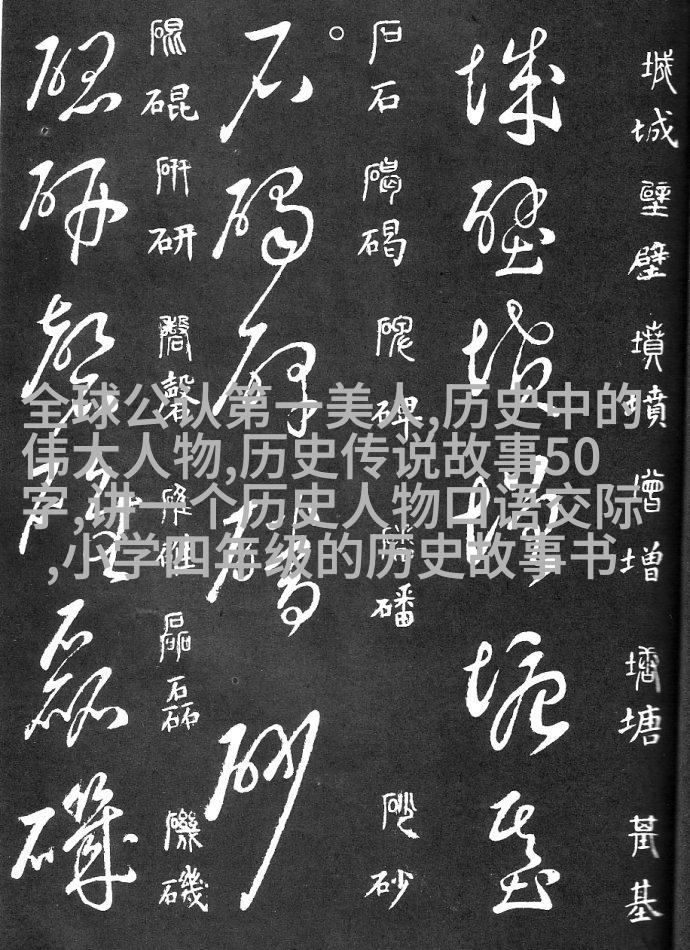 全球公认第一美人,历史中的
伟大人物,历史传说故事50
字,讲一个历史人物口语交际
,小学四年级的历史故事书
城城壁壁墳墳增增塘塘基基
城壁墳增塘基
石石碣碣碑碑磻磻砂砂
石碣碑磻砂
研研磬磬碓碓磊磊磯磯
研磬碓磊磯